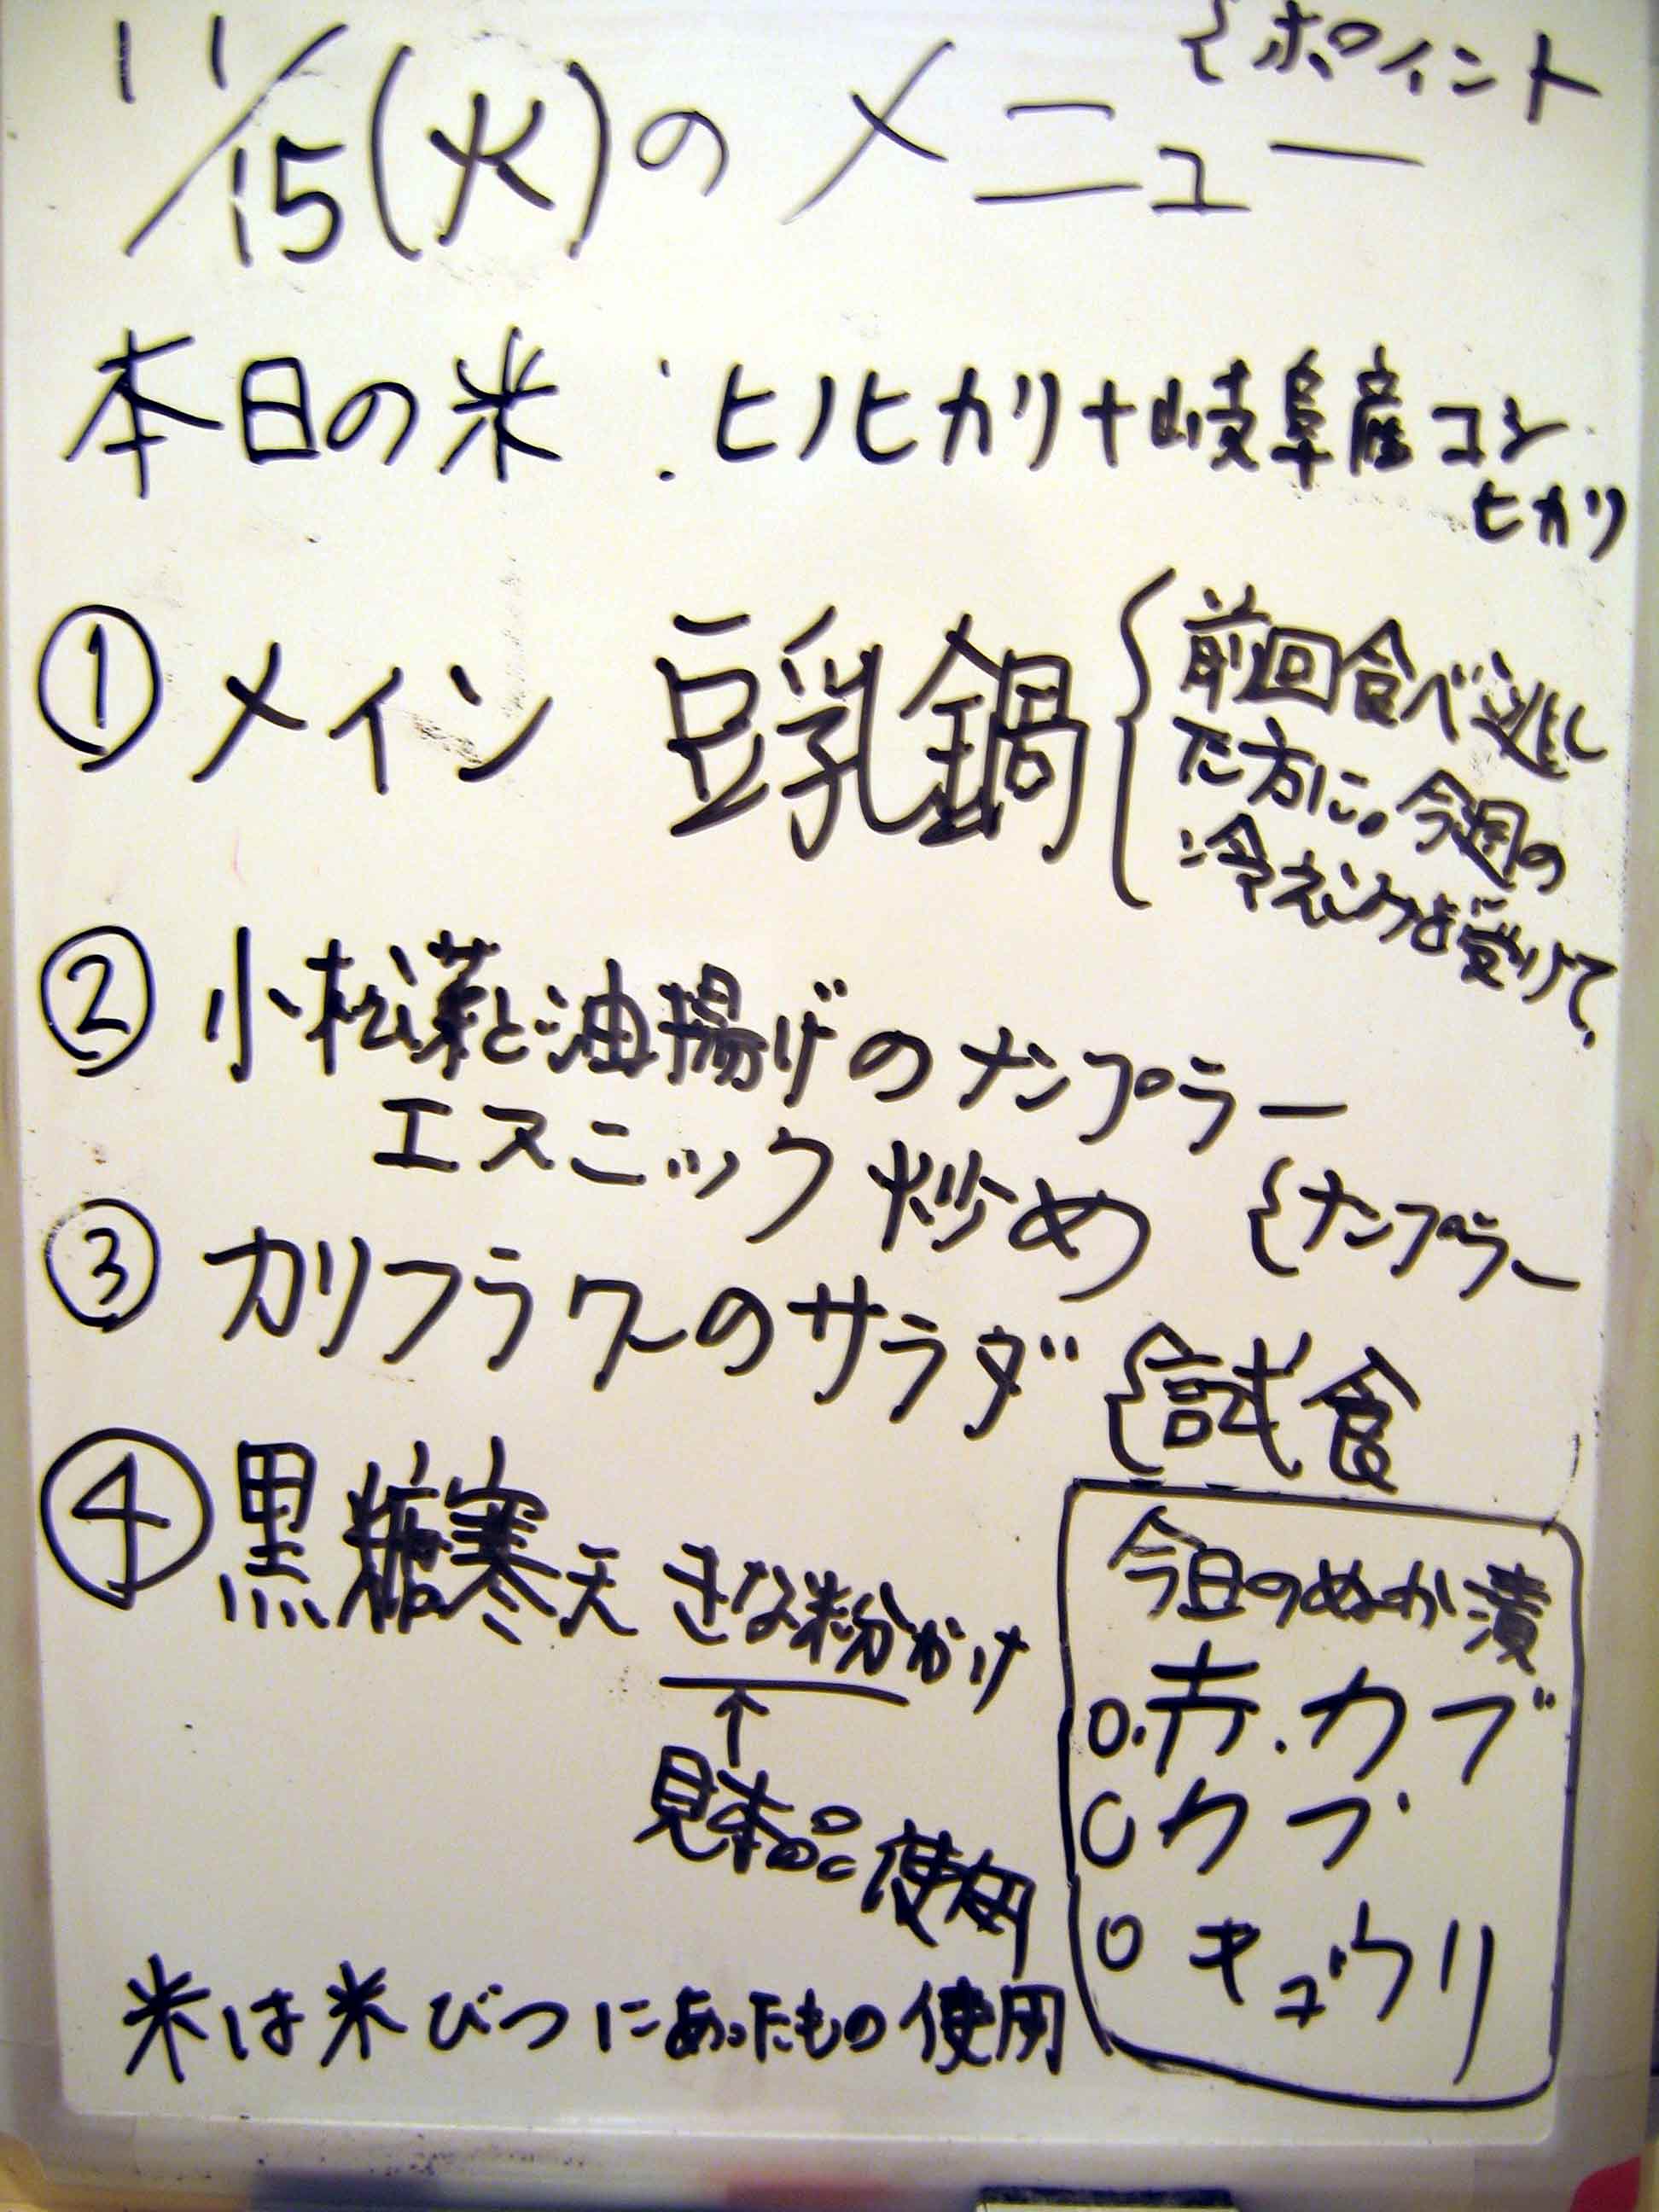 11/15(火)のメニュー
{ポイント
本日の米:ヒノヒカリ+岐阜産コシ
ヒカリ
①メイン 豆乳鍋
{前回食べ逃し
た方に。今週の
冷え込みを受けて。
②小松菜と油揚げのナンプラー
エスニック炒め {ナンプラー
③カリフラワーのサラダ {試食
④黒糖寒天 きなこ粉かけ
↑
見本品使用
今日のぬか漬
○.赤.カブ
○カブ
○キュウリ
米は米びつにあったもの使用